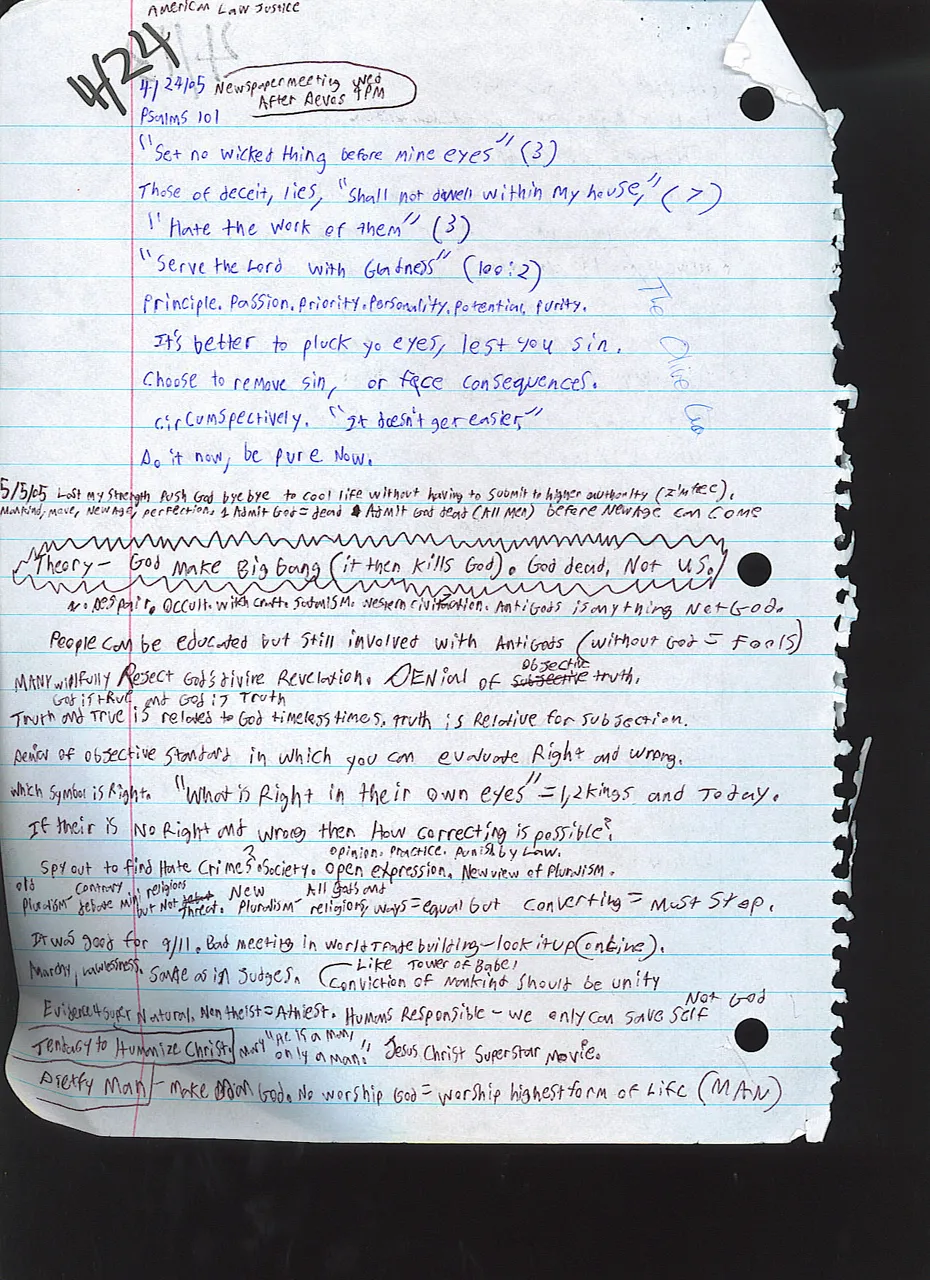 American Law Justice
4/24
4/24/05 Newspaper meeting Wed
After Devos 4PM
Psalms 101
"Set no wicked thing before mine eyes" (3)
Those of deceit, lies, "Shall not dwell within my house," (7)
"Hate the work of them" (3)
"Serve the Lord with Gladness" (100:2)
Principle. Passion. Priority. Personality. Potential. Purity.
It's better to pluck yo eyes, lest you sin.
Choose to remove sin, or face consequences.
Circumspectively. "It doesn't get easier,"
Do it now, be pure now.
The Olive
5/5/05 Lost my Strength Push God bye bye to cool life without having to submit to higher authority
Mankind, move, New Age, perfection. 1 Admit God = dead Admit God dead (All Men) before New Age can come
Theory – God make Big Bang (it then kills God). God dead, Not US.
No Despair. Occult. witchcraft. Satanism. Western civilization. AntiGods is anything Not God.
People can be educated but still involved with AntiGods (without God = Fools)
MANY willfully Reject God's divine Revelation. DENial of subjective truth.
Objective
God is true and God is Truth
Truth and True is related to God timeless times, truth is Relative for subjection.
Denial of objective standard in which you can evaluate Right and wrong.
which symbol is Right. "What is Right in their own eyes" = 1,2 Kings and Today.
If their is No Right and wrong then How correcting is possible?
opinion. Practice. Punish by Law.
Spy out to find Hate Crimes? Society. open expression. New view of Pluralism.
old contrary religions New All Gods and
Pluralism - debate but not threat. Pluralism - religions ways = equal but converting = Must Stop.
It was good for 9/11. Bad meeting in world Trade building – look it up (online).
Anarchy, lawlessness. Same as in Judges. Like Tower of Babel
Conviction of mankind should be unity
Not God
Evidence 4 Super Natural. Non theist = Athiest. Humans Responsible – we only can save self
Tendacy to Humanize Christ. Mary "He is a man, only a man." Jesus Christ Superstar Movie.
Dietfy Man – make man God. No worship God = worship highest form of Life (MAN)